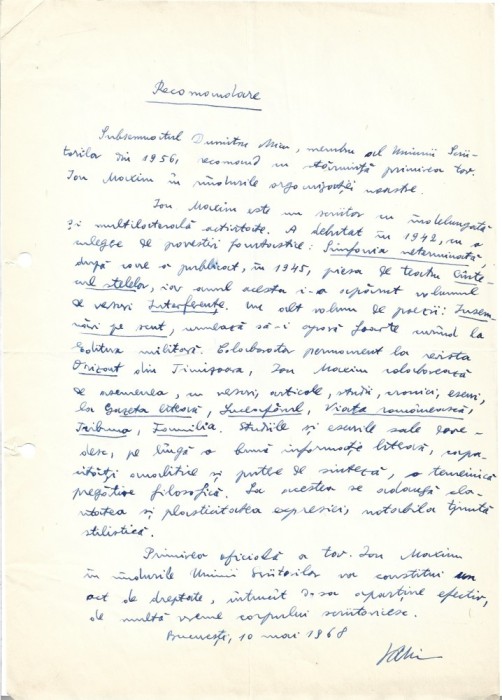 Recomandare
Subsemnatul Dumitru Micu, membru al Uniunii Scrii-
torilor din 1956, recomand cu stăruință primirea tov.
Ion Maxim în rîndurile organizației noastre.
Ion Maxim este un scriitor cu îndelungată
și multilaterală activitate. A debutat în 1942, cu o
culegere de povestiri fantastice: Simfonia neterminată,
după care a publicat, în 1945, piesa de teatru Cînte-
cul stelelor, iar anul acesta i-a apărut volumul
de versuri Interferențe. Un alt volum de poezii: Însem-
nări pe vînt, urmează să-i apară foarte curînd la
Editura militară. Colaborator permanent la revista
Orizont din Timișoara, Ion Maxim colaborează
de asemenea, cu versuri, articole, studii, cronici, eseuri,
la Gazeta literară, Luceafărul, Viața românească,
Tribuna, Familia. Studiile și eseurile sale dove-
desc, pe lîngă o bună informație literară, capa-
cități analitice și putere de sinteză, o temeinică
pregătire filosofică. La acestea se adaugă cla-
ritatea și plasticitatea expresiei, notabila ținută
stilistică.
Primirea oficială a tov. Ion Maxim
în rîndurile Uniunii Scriitorilor va constitui un
act de dreptate, întrucît d-sa aparține efectiv,
de multă vreme corpului scriitoricesc.
București, 10 mai 1968